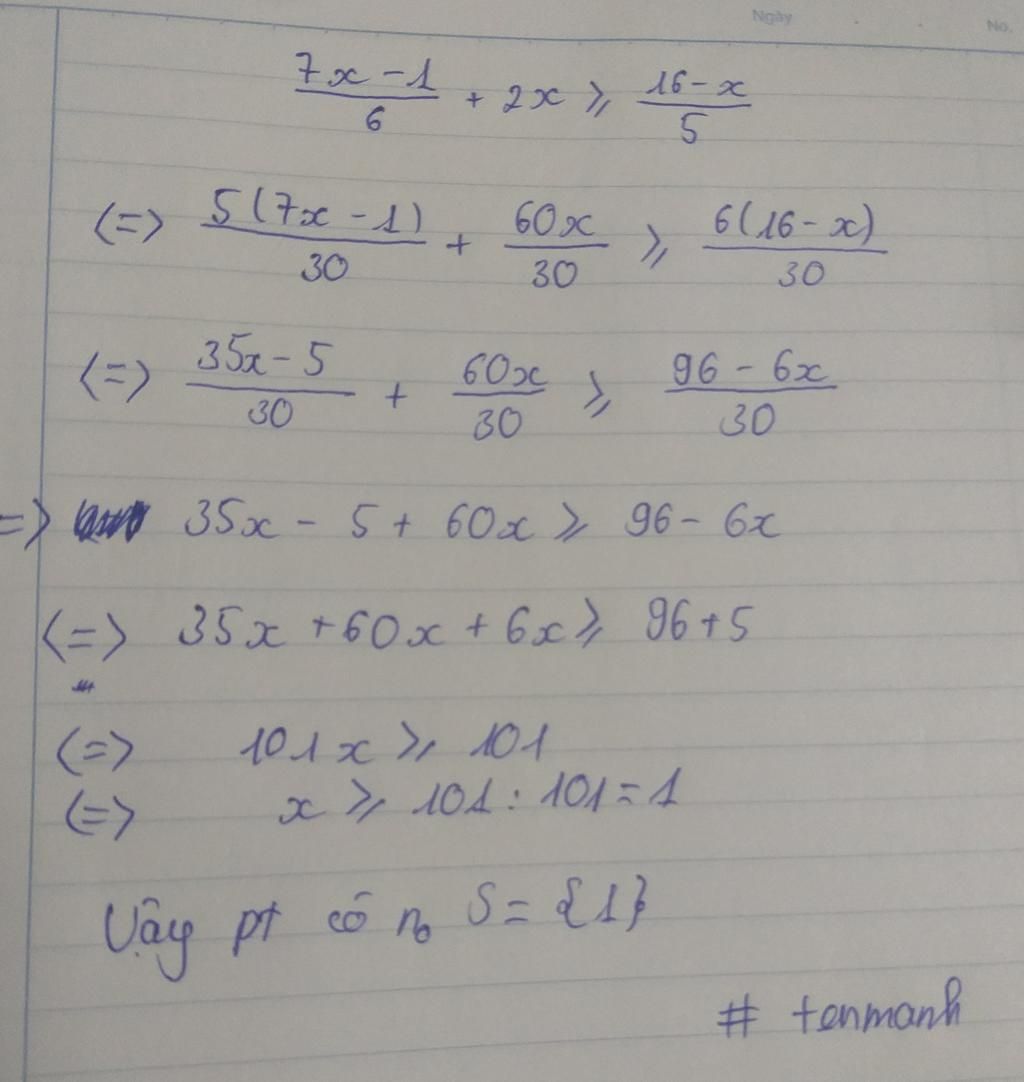 Ngày No.
7x - 1/6 + 2x ⩾ 16 - x/5
<=> 5(7x - 1)/30 + 60x/30 ⩾ 6(16 - x)/30
<=> 35x - 5/30 + 60x/30 ⩾ 96 - 6x/30
=> 35x - 5 + 60x ⩾ 96 - 6x
<=> 35x + 60x + 6x ⩾ 96 + 5
<=> 101x ⩾ 101
<=> x ⩾ 101 : 101 = 1
Vậy pt có n₀ S = {1}
# tenmanh